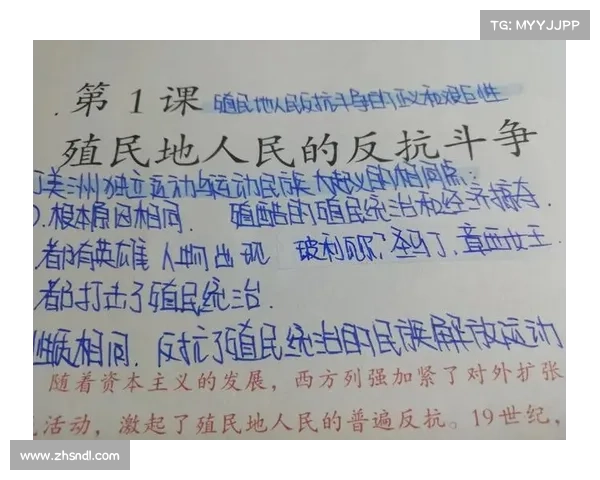 TG: MYYJJPP
第1课 殖民地人民反抗斗争的正义和艰巨性
殖民地人民的反抗斗争
美洲独立运动与运动民族大起义的相同点:
根本原因相同. 殖酷的殖民统治和经济掠夺.
都有英雄人物出现 玻利瓦尔, 圣马丁, 章西女王.
都打击了殖民统治.
性质相同. 反抗了殖民统治的民族解放运动
随着资本主义的发展，西方列强加紧了对外扩张
活动，激起了殖民地人民的普遍反抗。19世纪，
www.zhsndl.com